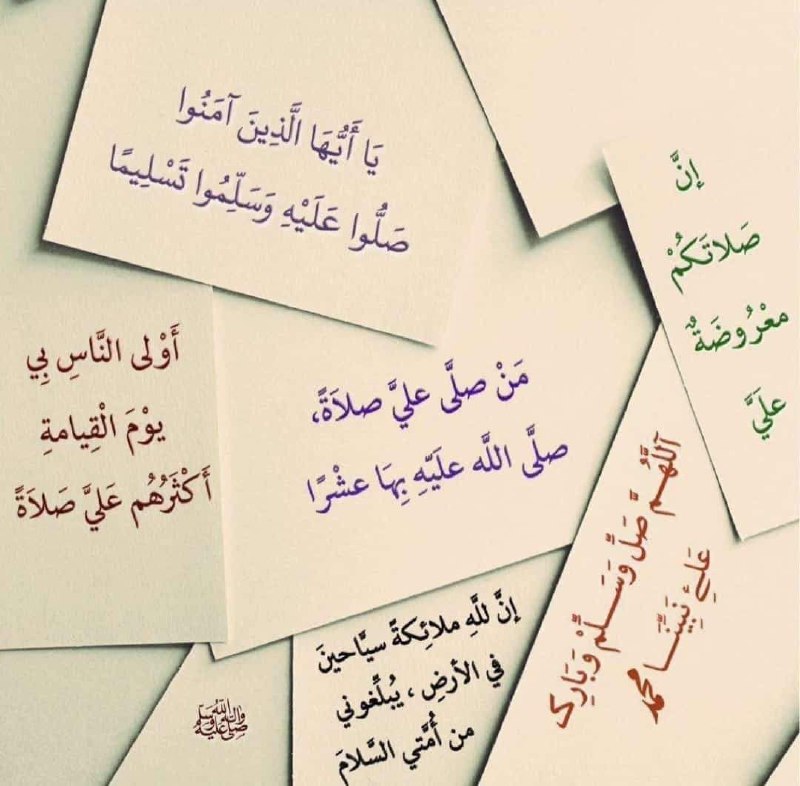 يَا أَيُّهَا الَّذِينَ آمَنُوا
صَلُّوا عَلَيْهِ وَسَلِّمُوا تَسْلِيمًا
إنَّ
صَلاتَكُمْ
مَعْرُوضَةٌ
عَلَيَّ
أَوْلى النَّاسِ بِي
يوْمَ الْقِيامةِ
أَكْثَرُهُم عَلَيَّ صَلاَةً
مَنْ صلَّى عليَّ صلاَةً،
صلَّى اللَّه علَيّهِ بِهَا عشْرًا
اَللَّهُمَّ صَلِّ وَسَلِّمْ وَبَارِك
عَلَىٰ نَبِيِّنَا محمد
إنَّ للَّهِ ملائِكةً سيَّاحينَ
في الأرضِ ، يُبلِّغوني
من أُمَّتي السَّلامَ
ﷺ